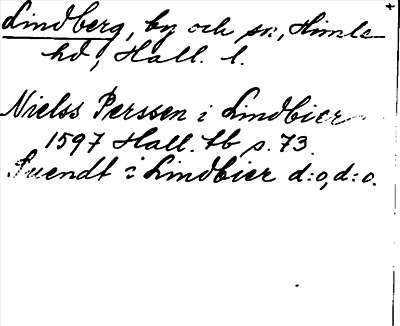 Lindberg, by och sn, Himle-
hd, Hall. l.
Nielss Perssen i Lindbier
1597 Hall. tb s. 73.
Suendt i Lindbier d:o, d:o.